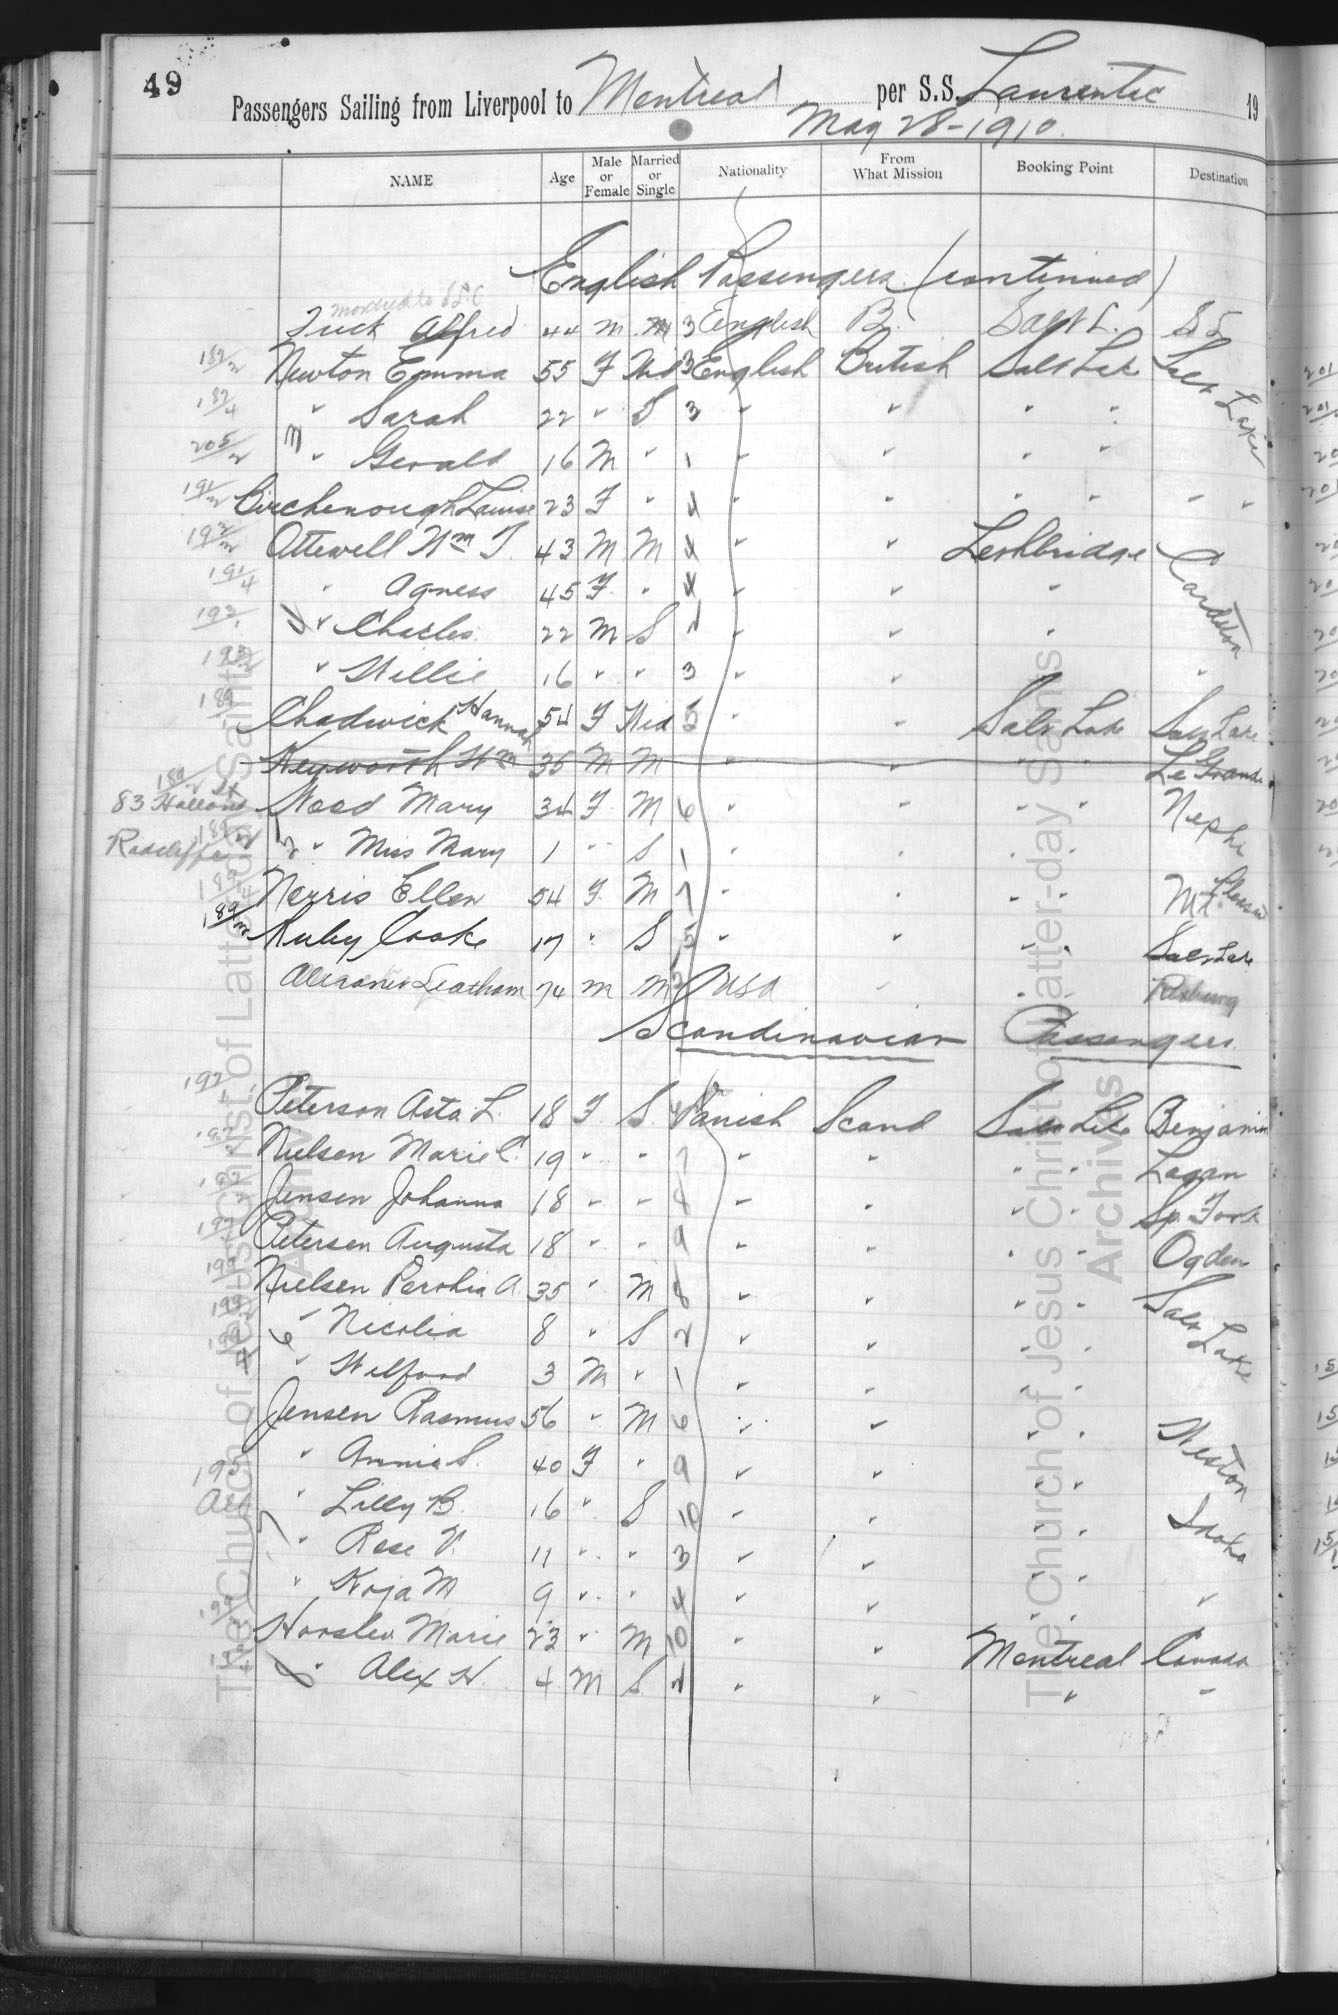 49
Passengers Sailing from Liverpool to Montreal per S.S. Laurentic 19
May 28-1910.
NAME Age Male or Female Married or Single Nationality From What Mission Booking Point Destination
English Passengers (continued)
Tuck Alfred 44 m m 3 English B. Salt L. S L
182/2 Newton Emma 55 F Wd 3 English British Salt Lake Salt Lake
182/4 " Sarah 22 " S 3 " " " "
205/2 3 " Gerald 16 M " 1 " " " "
191/2 Birchenough Louise 23 F " 4 " " " " " "
192/2 Attewell Wm T. 43 M M 4 " " Leshbridge Cardston
191/4 " Agness 45 F " 4 " " "
192/1 " Charles 22 M S 2 " " "
" Willie 16 " " 3 " " "
189 Chadwick Hannah 54 F Wid 5 " " Salt Lake Salt Lake
Keyworth Wm 35 M M " " " Le Grande
83 Holland St Wood Mary 34 F M 6 " " " " Nephi
Radcliffe 189/2 2 " Miss Mary 1 " " S 1 " " " "
189/4 Norris Ellen 54 F M 7 " " " " Mt. Pleasant
189/2 Ruby Cooke 17 " S 5 " " " " Salt Lake
Leatham 74 m M 2 USA " " " Rexburg
Scandinavian Passengers
192 Peterson Asta L. 18 F S 4 Danish Scand Salt Lake Benjamin
Nielsen Marie C. 19 " " 7 " " " " Logan
Jensen Johanna 18 " " 8 " " " " Sp. Fork
Petersen Augusta 18 " " 9 " " " " Ogden
Nielsen A. 35 " M 8 " " " " Salt Lake
" Nicolia 8 " S 2 " " " "
" Wilford 3 M " 1 " " " "
Jensen Rasmus 56 " M 6 " " " " Weston
195 " Annie S. 40 F " 9 " " " "
All " Lilly B. 16 " S 10 " " " " Idaho
" Rose V. 11 " " 3 " " " "
" Koja M 9 " " 4 " " " " "
Horslev Marie 23 " M 10 " " Montreal Canada
" Alex H. 4 M S 2 " " " "
The Church of Jesus Christ of Latter-day Saints
Archives
The Church of Jesus Christ of Latter-day Saints
Archives